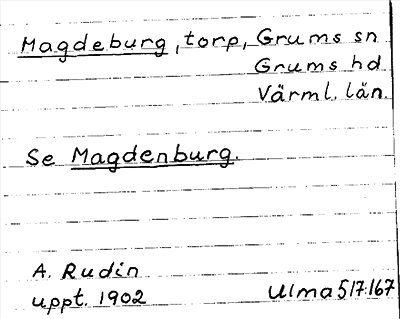 Magdeburg, torp, Grums sn
Grums hd
Värml. län.
Se Magdenburg.
A. Rudin
uppt. 1902
Ulma 517:167